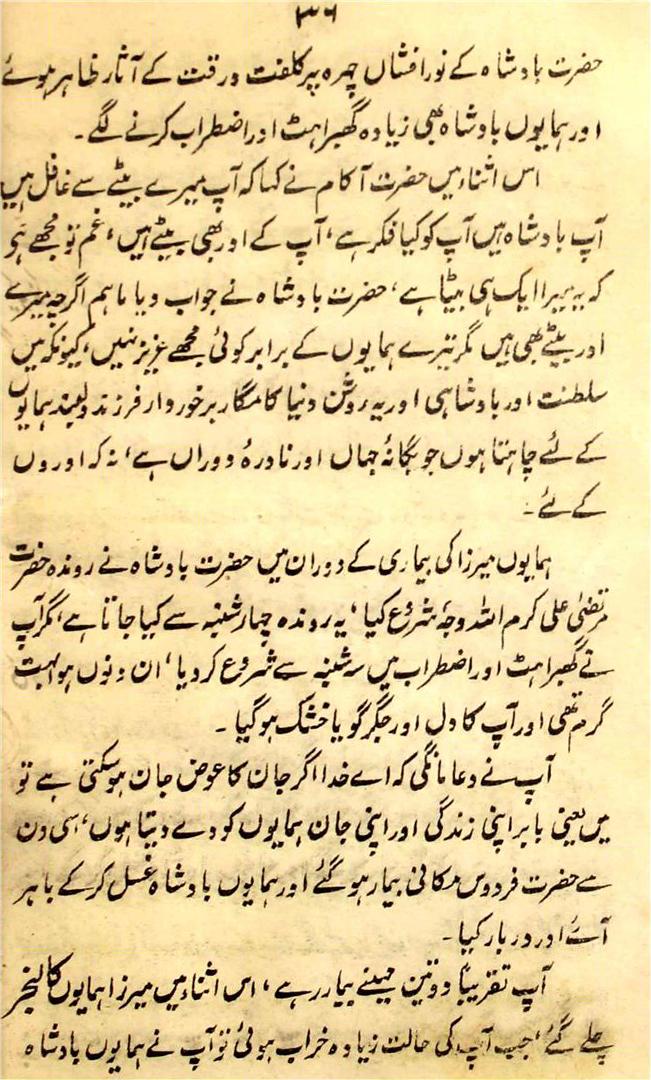 ۳۶
حضرت بادشاہ کے نورافشاں چہرہ پر کلفت ورقت کے آثار ظاہر ہوئے
اور ہمایوں بادشاہ بھی زیادہ گھبراہٹ اور اضطراب کرنے لگے۔
اس اثناء میں حضرت آکام نے کہا کہ آپ میرے بیٹے سے غافل ہیں
آپ بادشاہ ہیں آپ کو کیا فکر ہے، آپ کے اور بھی بیٹے ہیں، غم تو مجھے ہو
کہ یہ میرا ایک ہی بیٹا ہے، حضرت بادشاہ نے جواب دیا ماہم اگرچہ میرے
اور بیٹے بھی ہیں مگر تیرے ہمایوں کے برابر کوئی مجھے عزیز نہیں، کیونکہ میں
سلطنت اور بادشاہی اور یہ روشن دنیا کامگار برخوردار فرزند دلبند ہمایوں
کے لئے چاہتا ہوں جو یگانۂ جہاں اور نادرۂ دوراں ہے، نہ کہ اوروں
کے لئے۔
ہمایوں میرزا کی بیماری کے دوران میں حضرت بادشاہ نے روندہ حضرت
مرتضیٰ علی کرم اللہ وجہٗ شروع کیا، یہ روندہ چہارشنبہ سے کیا جاتا ہے، مگر آپ
نے گھبراہٹ اور اضطراب میں سہ شنبہ سے شروع کردیا، ان دنوں ہوا بہت
گرم تھی اور آپ کا دل اور جگر گویا خشک ہو گیا۔
آپ نے دعا مانگی کہ اے خدا اگر جان کا عوض جان ہو سکتی ہے تو
میں یعنی بابر اپنی زندگی اور اپنی جان ہمایوں کو دے دیتا ہوں، اسی دن
سے حضرت فردوس مکانی بیمار ہو گئے اور ہمایوں بادشاہ غسل کرکے باہر
آئے اور دربار کیا۔
آپ تقریباً دو تین مہینے بیمار رہے، اس اثناء میں میرزا ہمایوں کالنجر
چلے گئے، جب آپ کی حالت زیادہ خراب ہوئی تو آپ نے ہمایوں بادشاہ